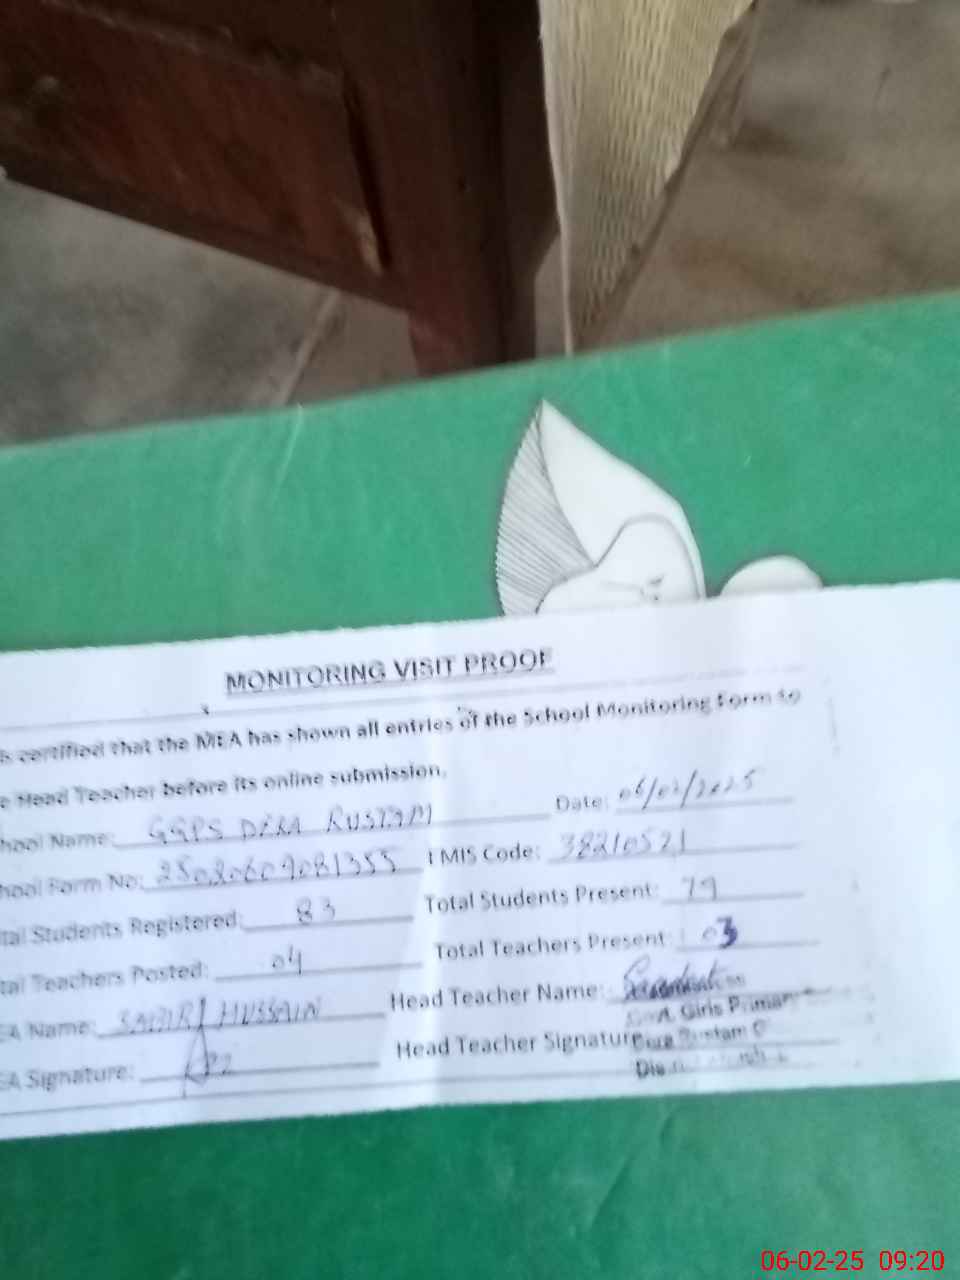 MONITORING VISIT PROOF
is certified that the MEA has shown all entries of the School Monitoring Form to
e Head Teacher before its online submission.
hool Name: GGPS DERA RUSTAM Date: 06/02/2025
hool Form No: EMIS Code: 38210521
tal Students Registered: 83 Total Students Present: 79
tal Teachers Posted: 04 Total Teachers Present: 03
EA Name: SABIR HUSSAIN Head Teacher Name:
Govt. Girls Primary
EA Signature: Head Teacher Signature
Dera Rustam
06-02-25 09:20